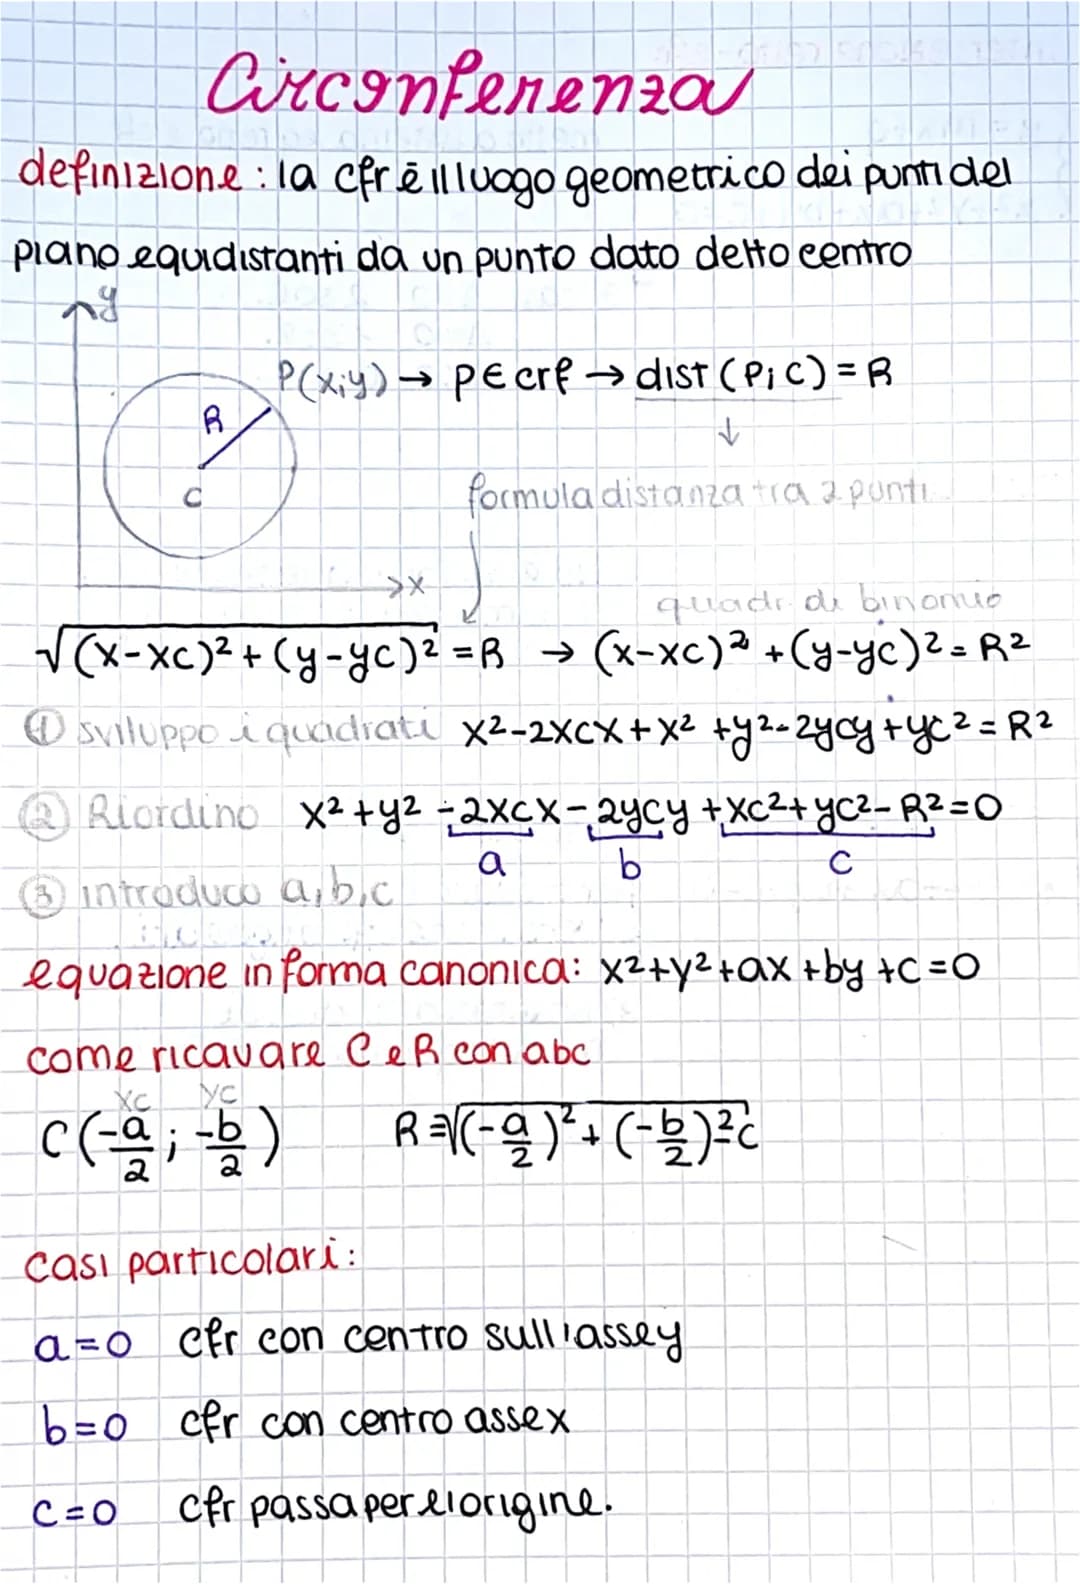 Circonferenza
definizione: la cfr è il luogo geometrico dei punti del
piano equidistanti da un punto dato detto centro
y
P(x;y) → P∈crf → dist (P;C) = R
R
↓
C
formula distanza tra 2 punti
>x
quadr. di binomio
√(x-xc)²+(y-yc)² = R → (x-xc)² +(y-yc)² = R²
① sviluppo i quadrati x²-2xcx+x² +y²-2ycy+yc² = R²
② Riordino x²+y² -2xcx-2ycy +xc²+yc²-R²=0
a b c
③ introduco a,b,c
equazione in forma canonica: x²+y²+ax+by+c=0
come ricavare C e R con abc
xc yc
C(-a/2; -b/2) R=√(-a/2)²+(-b/2)²-c
casi particolari:
a=0 cfr con centro sull'asse y
b=0 cfr con centro asse x
c=0 cfr passa per l'origine.